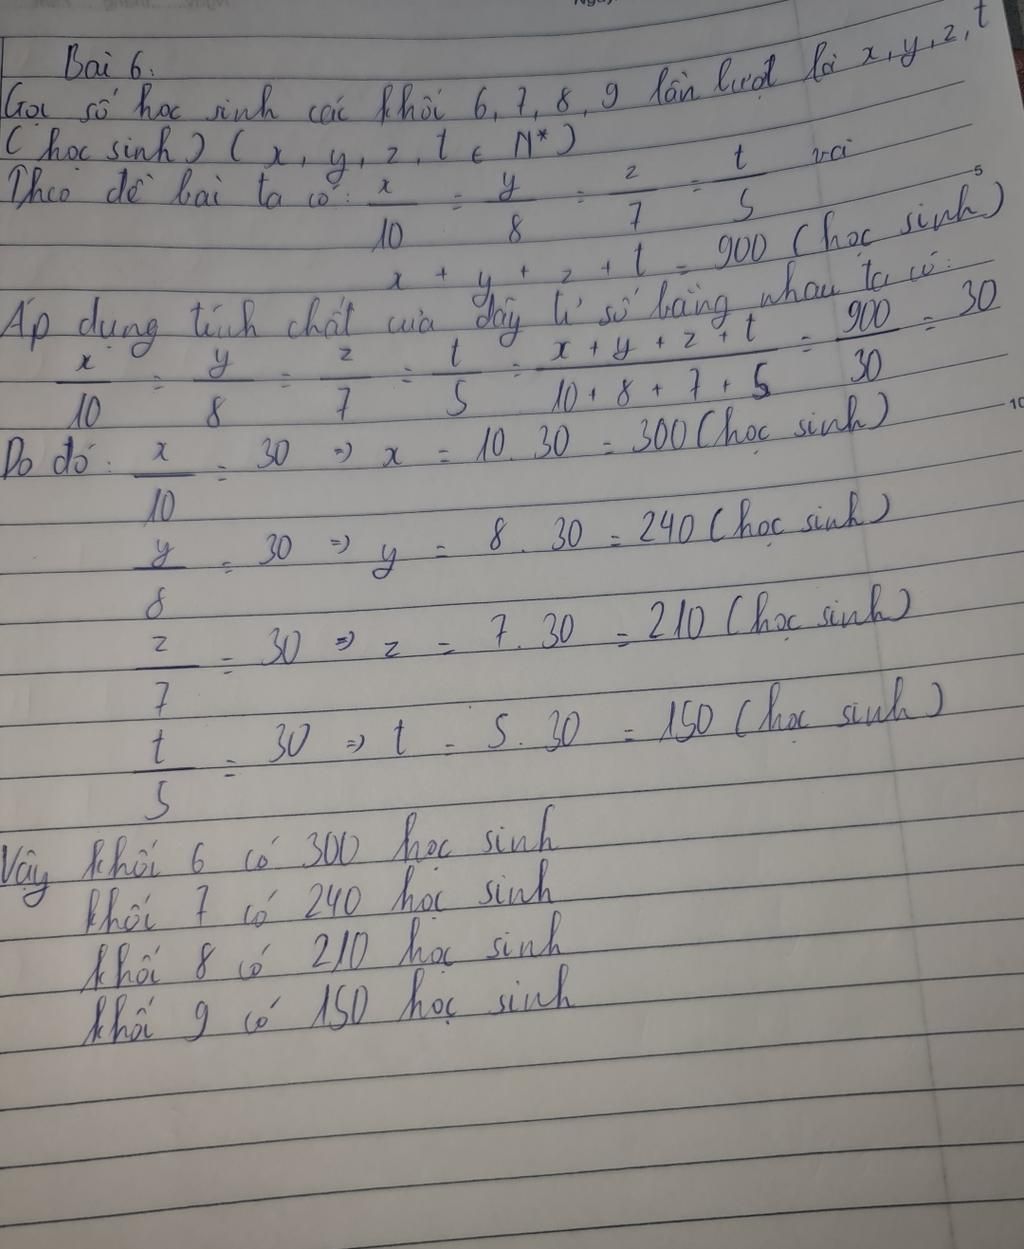 Bài 6:
Gọi số học sinh các khối 6, 7, 8, 9 lần lượt là x, y, z, t
(học sinh) (x, y, z, t ∈ N*)
Theo đề bài ta có: x/10 = y/8 = z/7 = t/5 và
x + y + z + t = 900 (học sinh)
Áp dụng tính chất của dãy tỉ số bằng nhau ta có:
x/10 = y/8 = z/7 = t/5 = (x + y + z + t)/(10 + 8 + 7 + 5) = 900/30 = 30
Do đó: x/10 = 30 => x = 10.30 = 300 (học sinh)
y/8 = 30 => y = 8.30 = 240 (học sinh)
z/7 = 30 => z = 7.30 = 210 (học sinh)
t/5 = 30 => t = 5.30 = 150 (học sinh)
Vậy khối 6 có 300 học sinh
khối 7 có 240 học sinh
khối 8 có 210 học sinh
khối 9 có 150 học sinh
5
10